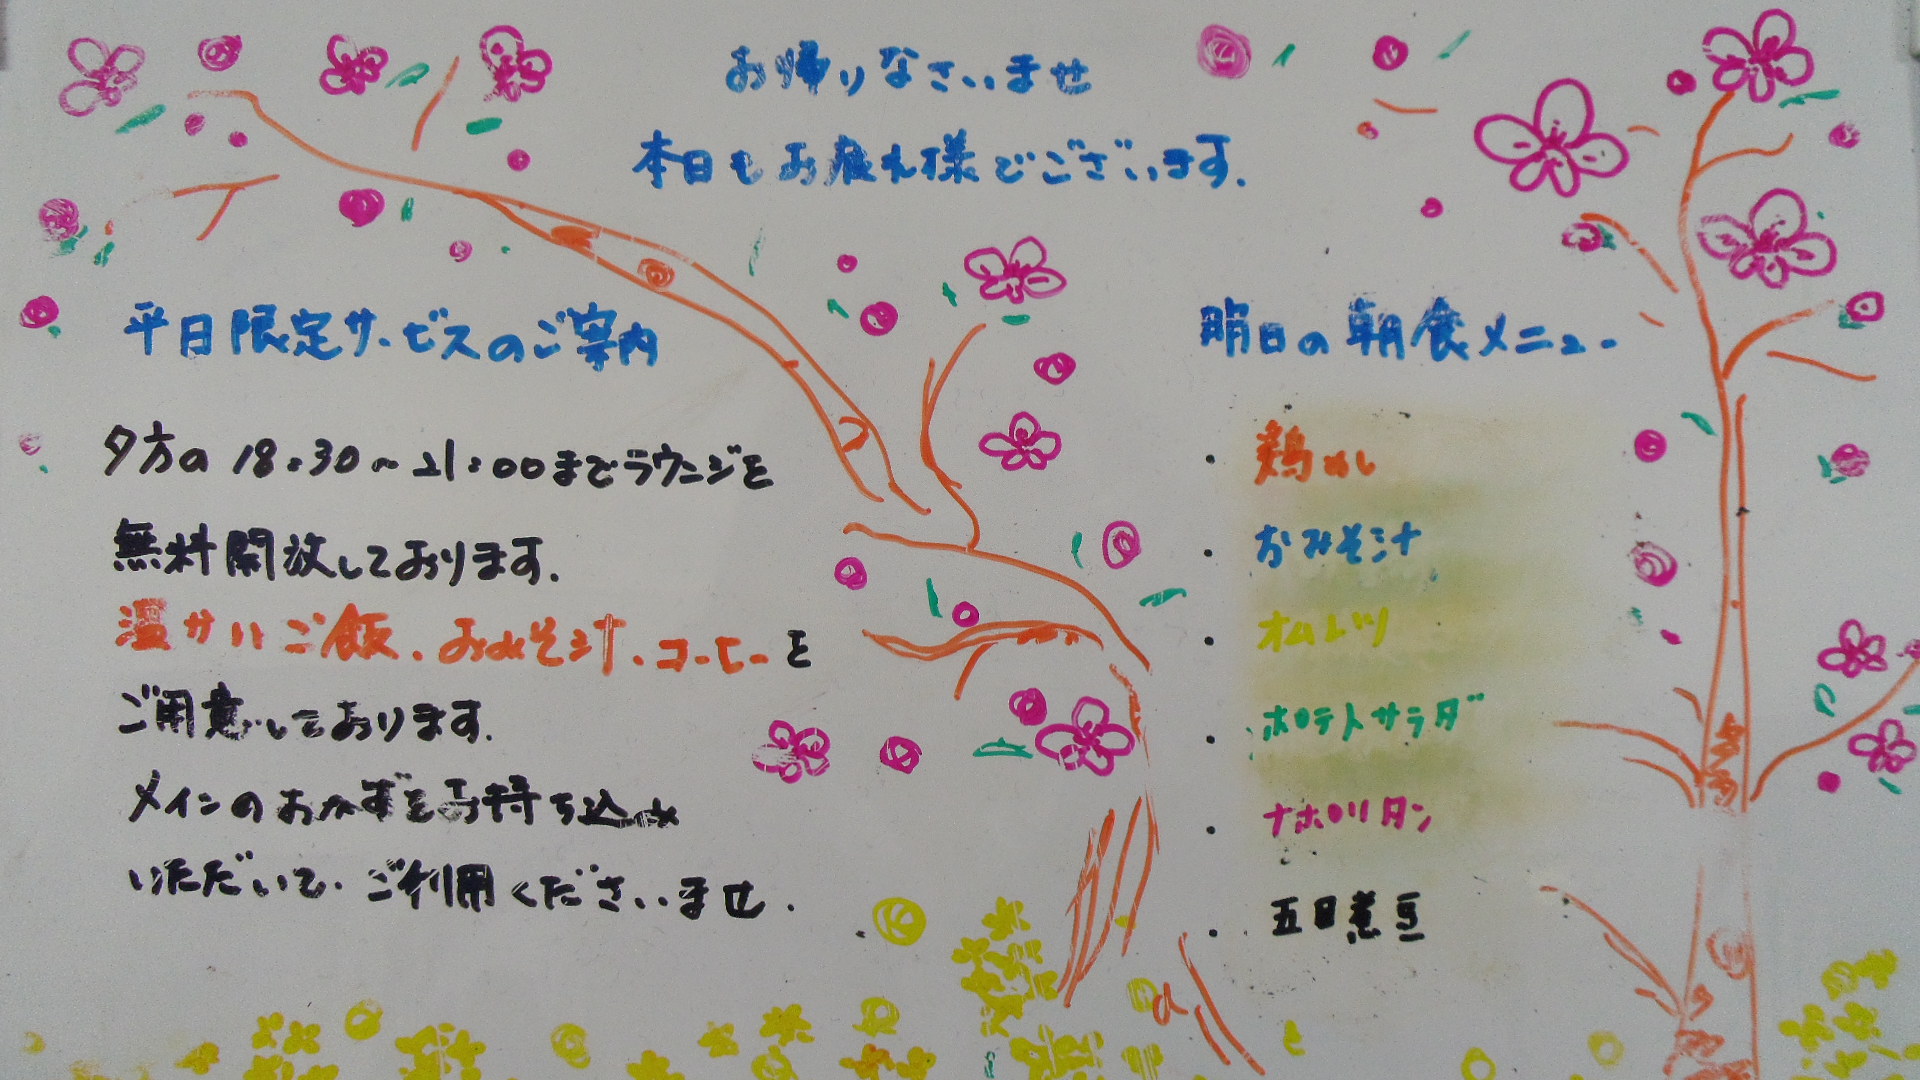 お帰りなさいませ
本日もお疲れ様でございます.
平日限定サービスのご案内
夕方の 18:30～21:00までラウンジを
無料開放しております.
温かいご飯、おみそ汁、コーヒーを
ご用意しております.
メインのおかずをお持ち込み
いただいて、ご利用くださいませ.
明日の朝食メニュー
・鶏めし
・おみそ汁
・オムレツ
・ポテトサラダ
・ナポリタン
・五目煮豆